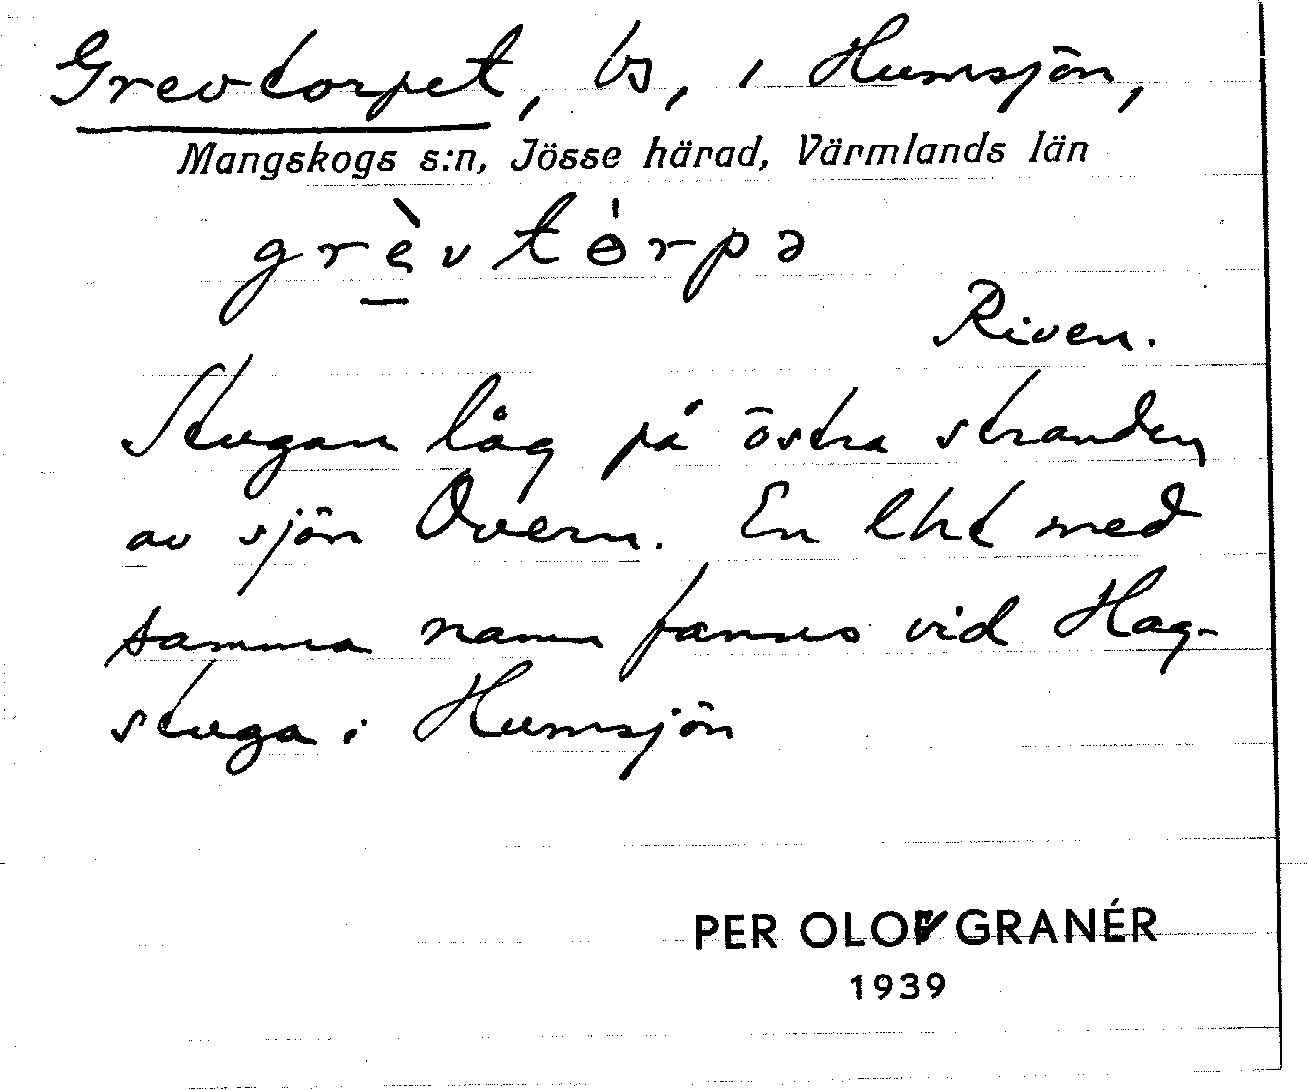 Grevtorpet, bs, i Humsjön,
Mangskogs s:n, Jösse härad, Värmlands län
grèvtɵ́rpə
Riven.
Stugan låg på östra stranden
av sjön Övern. En lht med
samma namn fanns vid Hag-
stuga i Humsjön
PER OLOV GRANÉR
1939